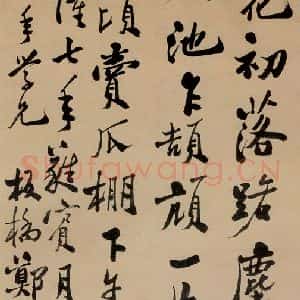 花初落
池上頡頏一
頃賣瓜棚下午
隆七年蕤賓月
年學兄 板橋鄭
Shufawang.CN